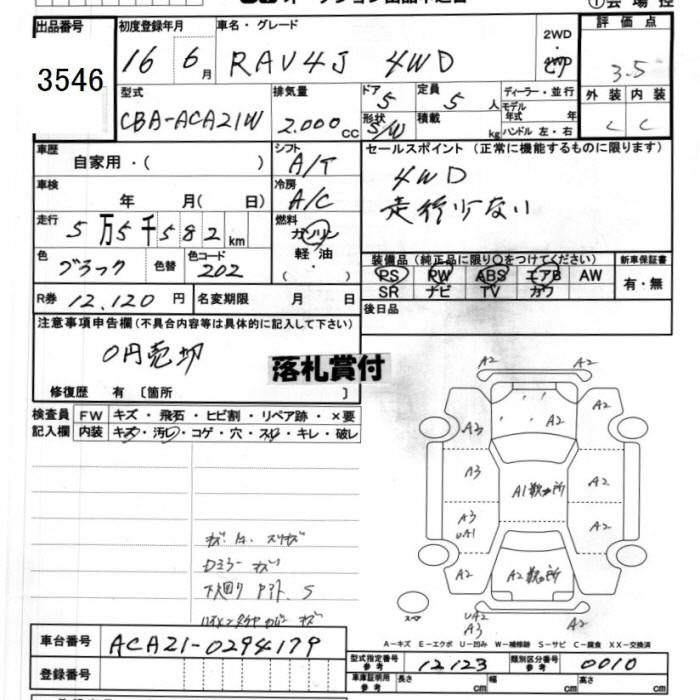 出品番号 初度登録年月 車名・グレード 2WD・4WD 評価点
3546 16年 6月 RAV4J 4WD 3.5
型式 排気量 ドア 5 定員 5人 ディーラー・並行 外装 内装
CBA-ACA21W 2.000cc 形状 S/W 積載 kg モデル年式 年式 ハンドル 左・右 C C
車歴 自家用・( ) シフト A/T セールスポイント (正常に機能するものに限ります)
車検 年 月( 日) 冷房 A/C 4WD
走行 5万5千582km 燃料 ガソリン・軽油・( ) 走行少ない
色 ブラック 色替 色コード 202 装備品 (純正品に限り○をつけてください) 新車保証書
PS PW ABS エアB AW 有・無
SR ナビ TV カワ
R券 12,120円 名変期限 月 日 後日品
注意事項申告欄(不具合内容等は具体的に記入して下さい)
0円売切
落札賞付
修復歴 有 〔箇所 〕
検査員記入欄 FW キズ・飛石・ヒビ割・リペア跡・×要
内装 キズ・汚レ・コゲ・穴・スレ・キレ・破レ
A2 A2
A2 A2
A3
A3 A1歓ヵ所 A2
A3 A2
UA1
A2 A2歓ヵ所 A2
スペア UA2 A2
A3
下廻り S
キズ
A-キズ E-エクボ U-凹み W-補修跡 S-サビ C-腐食 XX-交換済
車台番号 ACA21-0294179
型式指定番号 参考 12123 類別区分番号 参考 0010
登録番号 車庫証明用 参考 長さ cm 幅 cm 高さ cm